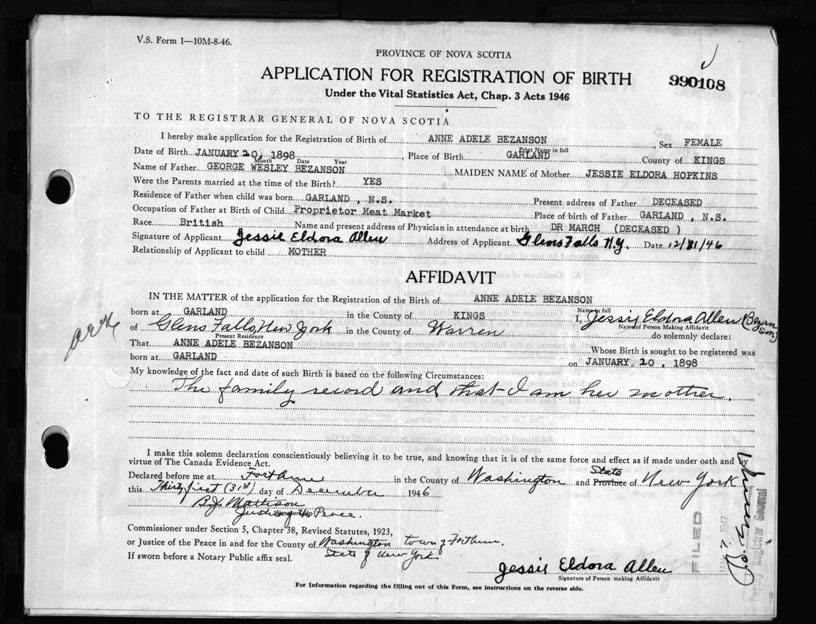 V.S. Form 1—10M-8-46.
PROVINCE OF NOVA SCOTIA
APPLICATION FOR REGISTRATION OF BIRTH
990108
Under the Vital Statistics Act, Chap. 3 Acts 1946
TO THE REGISTRAR GENERAL OF NOVA SCOTIA
I hereby make application for the Registration of Birth of ANNE ADELE BEZANSON, Sex FEMALE
Print Name in full
Date of Birth JANUARY 20, 1898, Place of Birth GARLAND County of KINGS
Month Date Year
Name of Father GEORGE WESLEY BEZANSON MAIDEN NAME of Mother JESSIE ELDORA HOPKINS
Were the Parents married at the time of the Birth? YES
Residence of Father when child was born GARLAND , N.S. Present address of Father DECEASED
Occupation of Father at Birth of Child Proprietor Meat Market Place of birth of Father GARLAND , N.S.
Race British Name and present address of Physician in attendance at birth DR MARCH (DECEASED )
Signature of Applicant Jessie Eldora Allen Address of Applicant Glens Falls N.Y. Date 12/31/46
Relationship of Applicant to child MOTHER
AFFIDAVIT
IN THE MATTER of the application for the Registration of the Birth of ANNE ADELE BEZANSON
Name in full
born at GARLAND in the County of KINGS I, Jessie Eldora Allen (Bezanson)
of Glens Falls, New York in the County of Warren
Present Residence
Name of Person Making Affidavit
do solemnly declare:
That ANNE ADELE BEZANSON Whose Birth is sought to be registered was
born at GARLAND on JANUARY, 20 , 1898
My knowledge of the fact and date of such Birth is based on the following Circumstances:
The family record and that I am her mother.
I make this solemn declaration conscientiously believing it to be true, and knowing that it is of the same force and effect as if made under oath and by
virtue of The Canada Evidence Act.
Declared before me at Fort Ann in the County of Washington and State Province of New York
this Thirty first (31st) day of December 1946
B.J. Mattison
Justice of the Peace.
Commissioner under Section 5, Chapter 38, Revised Statutes, 1923,
or Justice of the Peace in and for the County of Washington town of Fort Ann.
If sworn before a Notary Public affix seal. State of New York
Jessie Eldora Allen
Signature of Person making Affidavit
For Information regarding the filling out of this Form, see instructions on the reverse side.
FILED